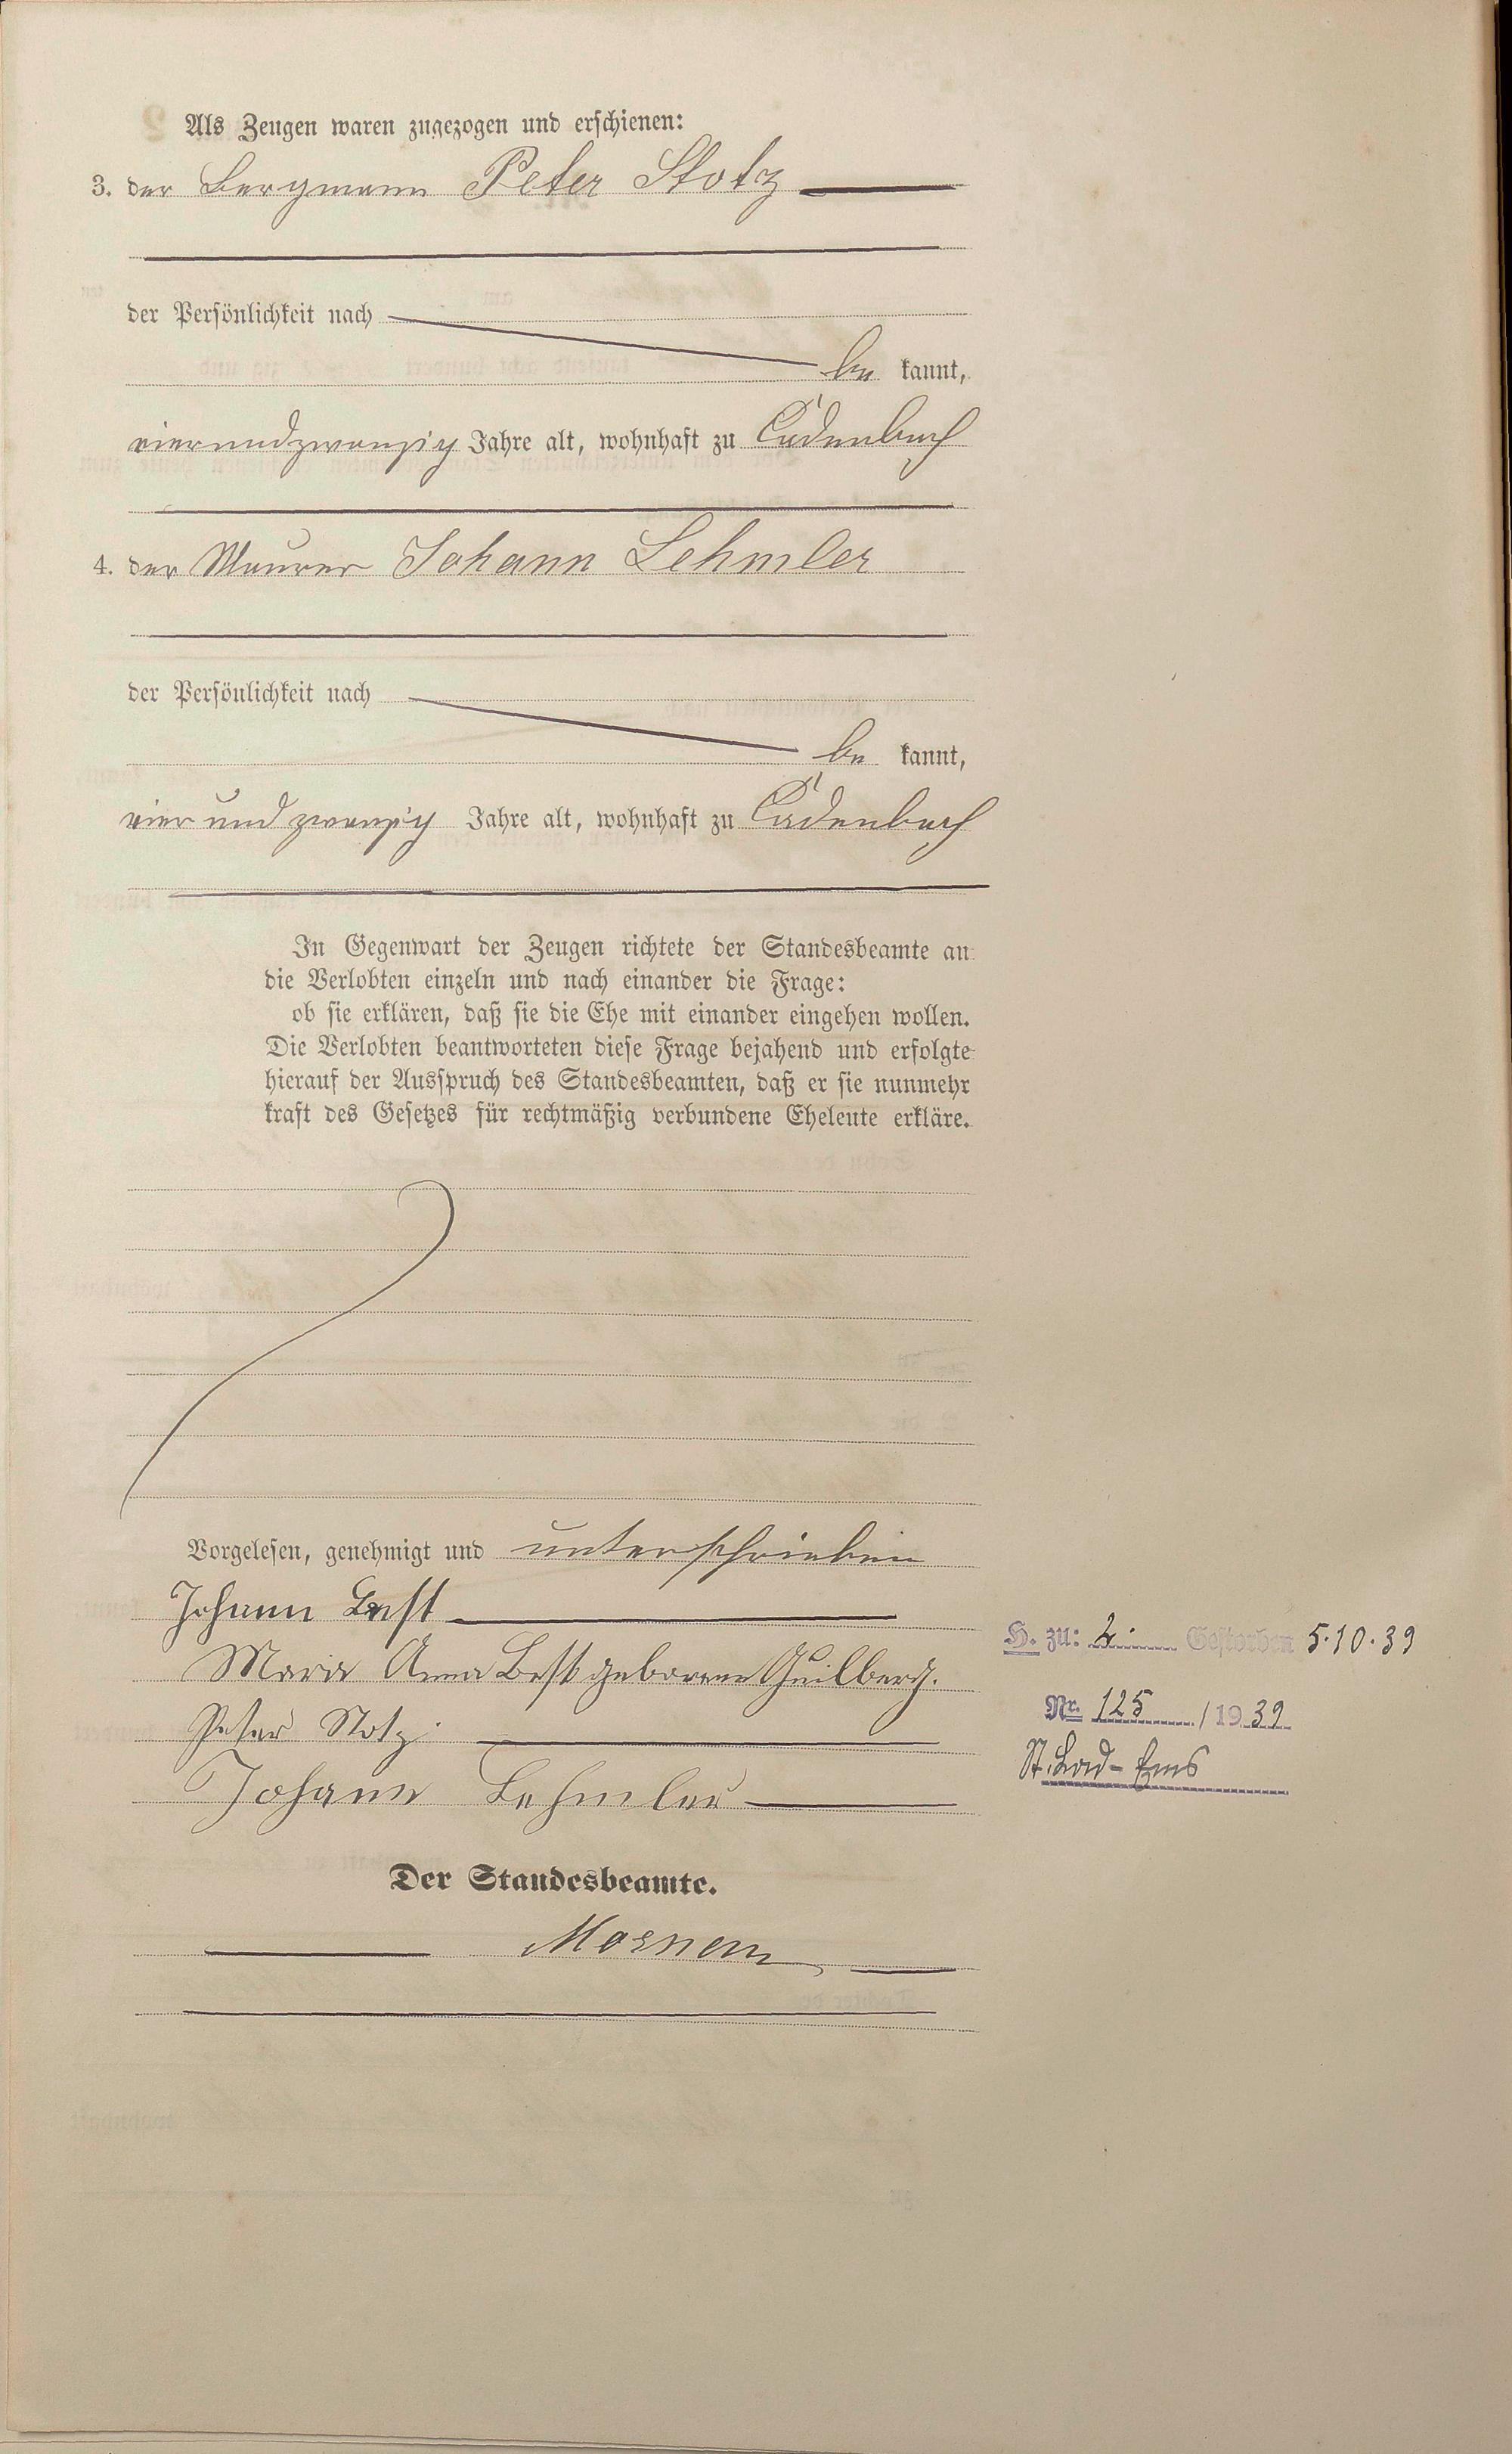 Als Zeugen waren zugezogen und erschienen:
3. der Bergmann Peter Stotz
der Persönlichkeit nach
be kannt,
vierundzwanzig Jahre alt, wohnhaft zu Cadenbach
4. der Maurer Johann Lehmler
der Persönlichkeit nach
be kannt,
vier und zwanzig Jahre alt, wohnhaft zu Cadenbach
In Gegenwart der Zeugen richtete der Standesbeamte an
die Verlobten einzeln und nach einander die Frage:
ob sie erklären, daß sie die Ehe mit einander eingehen wollen.
Die Verlobten beantworteten diese Frage bejahend und erfolgte
hierauf der Ausspruch des Standesbeamten, daß er sie nunmehr
kraft des Gesetzes für rechtmäßig verbundene Eheleute erkläre.
Vorgelesen, genehmigt und unterschrieben
Johann Best
Maria Anna Best geborene Guilberg.
Peter Stotz
Johann Lehmler
H. zu: 2. Gestorben 5.10.39
Nr. 125 / 1939
St. Bad-Ems
Der Standesbeamte.